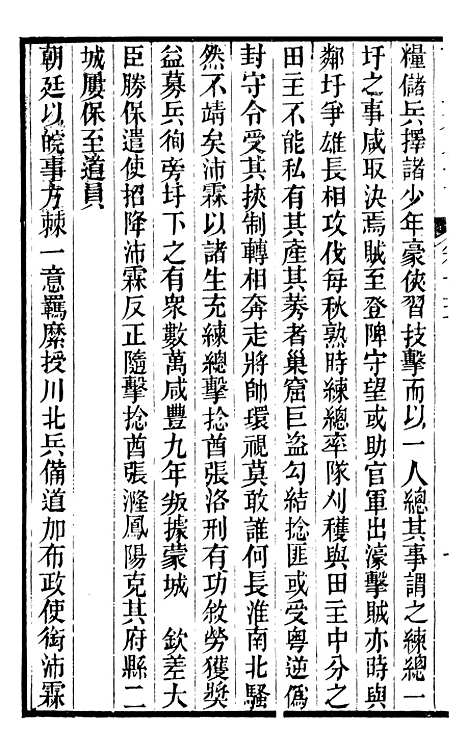 糧儲兵擇諸少年豪俠習技擊而以一人總其事謂之練總一
圩之事咸取決焉賊至登陴守望或助官軍出濠擊賊亦時與
鄰圩爭雄長相攻伐每秋熟時練總率隊刈穫與田主中分之
田主不能私有其產其莠者巢窟巨盜勾結捻匪或受粵逆偽
封守令受其挾制轉相奔走將帥環視莫敢誰何長淮南北騷
然不靖矣沛霖以諸生充練總擊捻酋張洛刑有功敘勞獲獎
益募兵徇旁圩下之有衆數萬咸豐九年叛據蒙城　欽差大
臣勝保遣使招降沛霖反正隨擊捻酋張漋鳳陽克其府縣二
城屢保至道員
朝廷以皖事方棘一意羈縻授川北兵備道加布政使銜沛霖